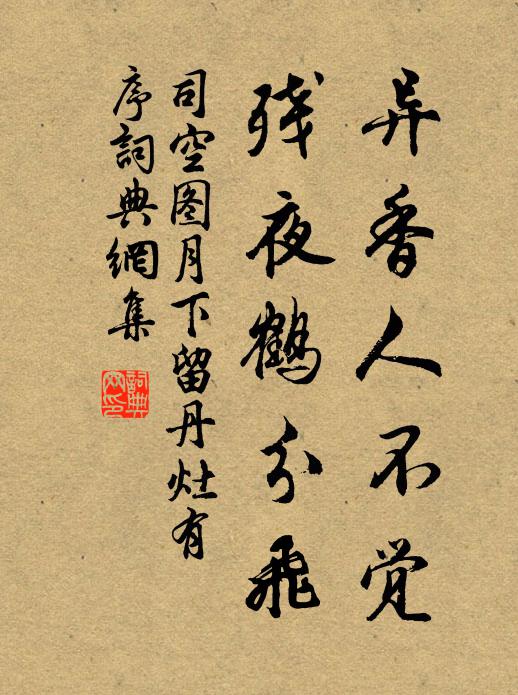 异香人不觉
残夜鹤分飞
司空图月下留丹灶有
序词典网集
词典
网印